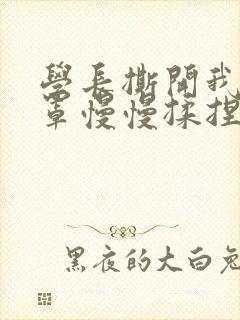 學長撕開我
罩慢慢揉捏
黑夜的大白兔